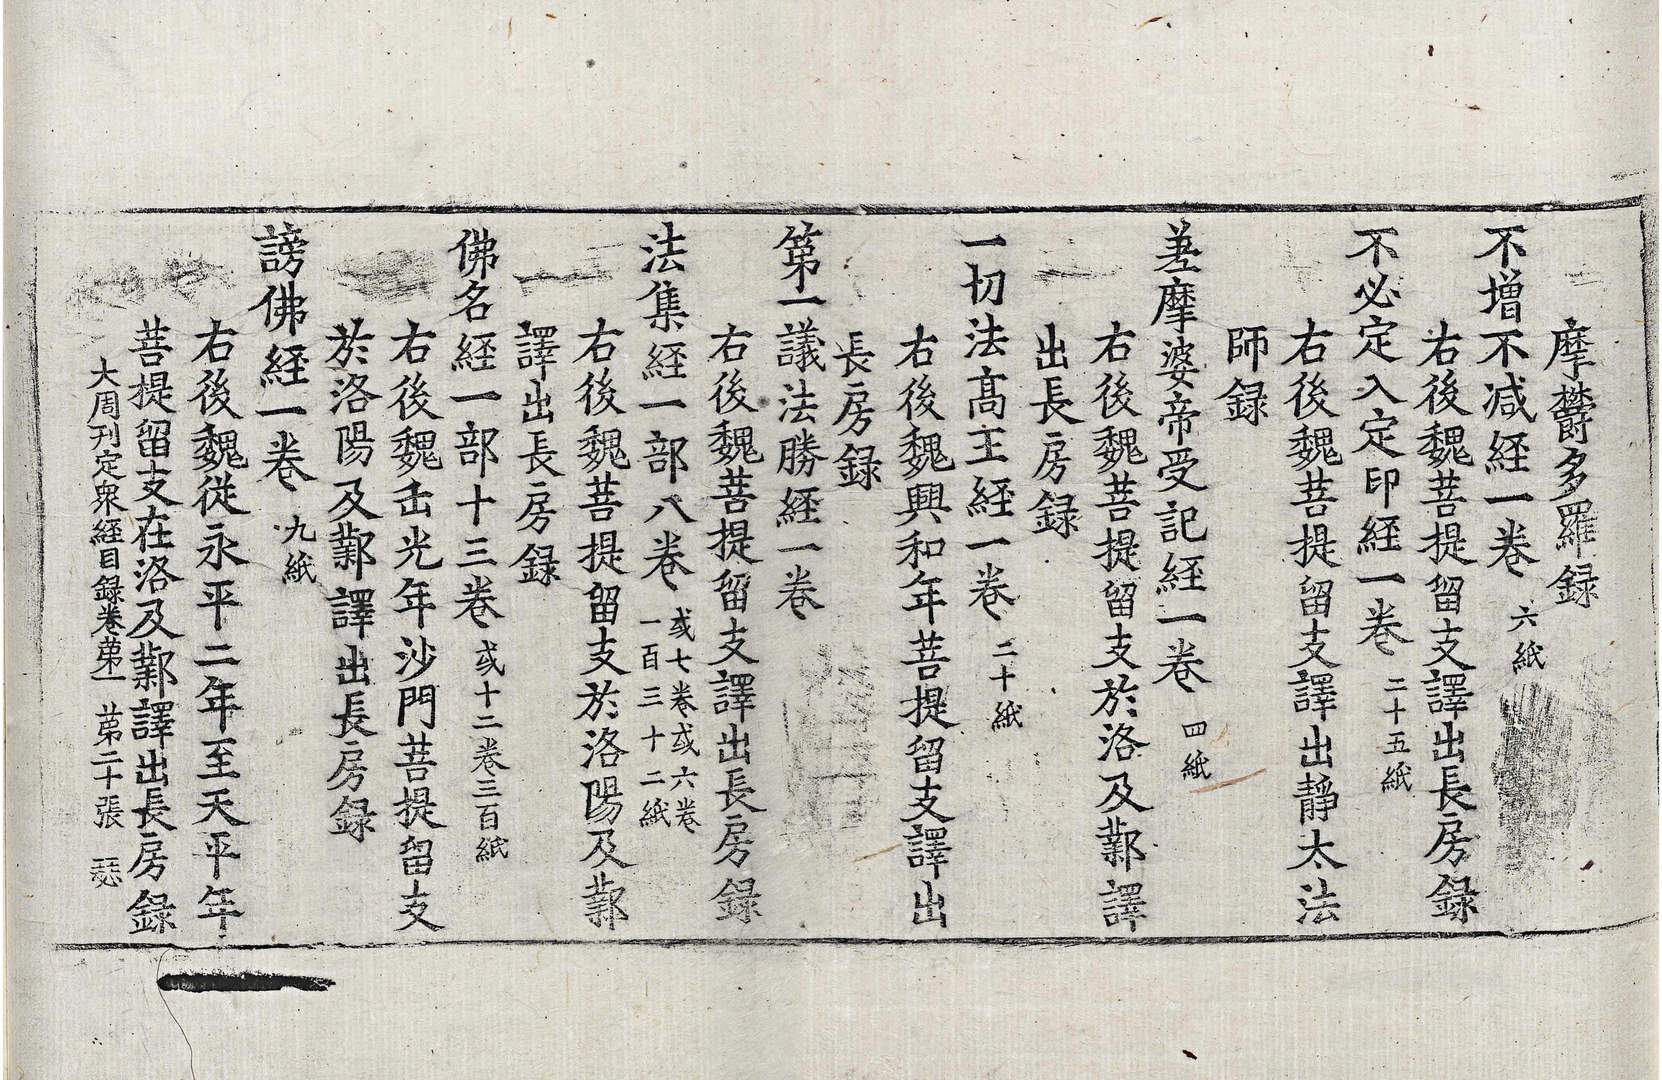 摩欝多羅録
不增不減経一卷 六紙
右後魏菩提留支譯出長房録
不必定入定印経一卷 二十五紙
右後魏菩提留支譯出靜太法
師録
差摩婆帝受記経一卷 四紙
右後魏菩提留支於洛及鄴譯
出長房録
一切法髙王経一卷 二十紙
右後魏興和年菩提留支譯出
長房録
第一議法勝経一卷
右後魏菩提留支譯出長房録
法集経一部八卷 或七卷或六卷
一百三十二紙
右後魏菩提留支於洛陽及鄴
譯出長房録
佛名経一部十三卷 或十二卷三百紙
右後魏正光年沙門菩提留支
於洛陽及鄴譯出長房録
謗佛経一卷 九紙
右後魏従永平二年至天平年
菩提留支在洛及鄴譯出長房録
大周刊定衆経目録卷苐一 苐二十張